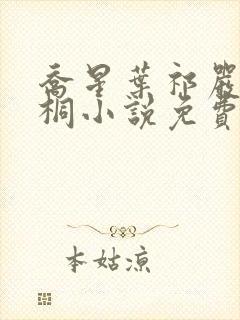 喬星葉祁嚴
桐小說免費
本姑涼